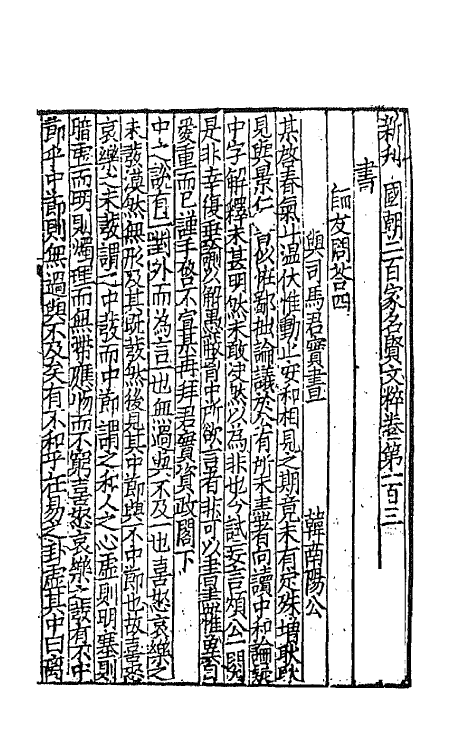 新刊國朝二百家名賢文粹卷第一百三
書
師友問荅四
與司馬君實書 韓南陽公
某啓春氣上温伏惟動止安和相見之期竟未有定殊增耿耿
見與景仁 鄙拙論議於公有所未盡者向讀中和論疑
中字解釋未甚明然未敢決然以為非也今試妄言煩公一閱
是非幸復垂喻以解愚蔽胷中所欲言者非可以書盡惟異同
愛重而已謹手啓不宣某再拜君實資政閣下
中之說有二對外而為言一也無過與不及一也喜怒哀樂之
未發漠然無形及其既發然後見其中節與不中節也故喜怒
哀樂之未發謂之中發而中節謂之和人之心虛則明塞則
暗虛而明則燭理而無滯應物而不窮喜怒哀樂之發有不中
節乎中節則無過與不及矣有不和乎在易之卦虛其中曰离